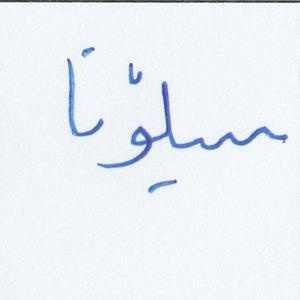 سيلونا